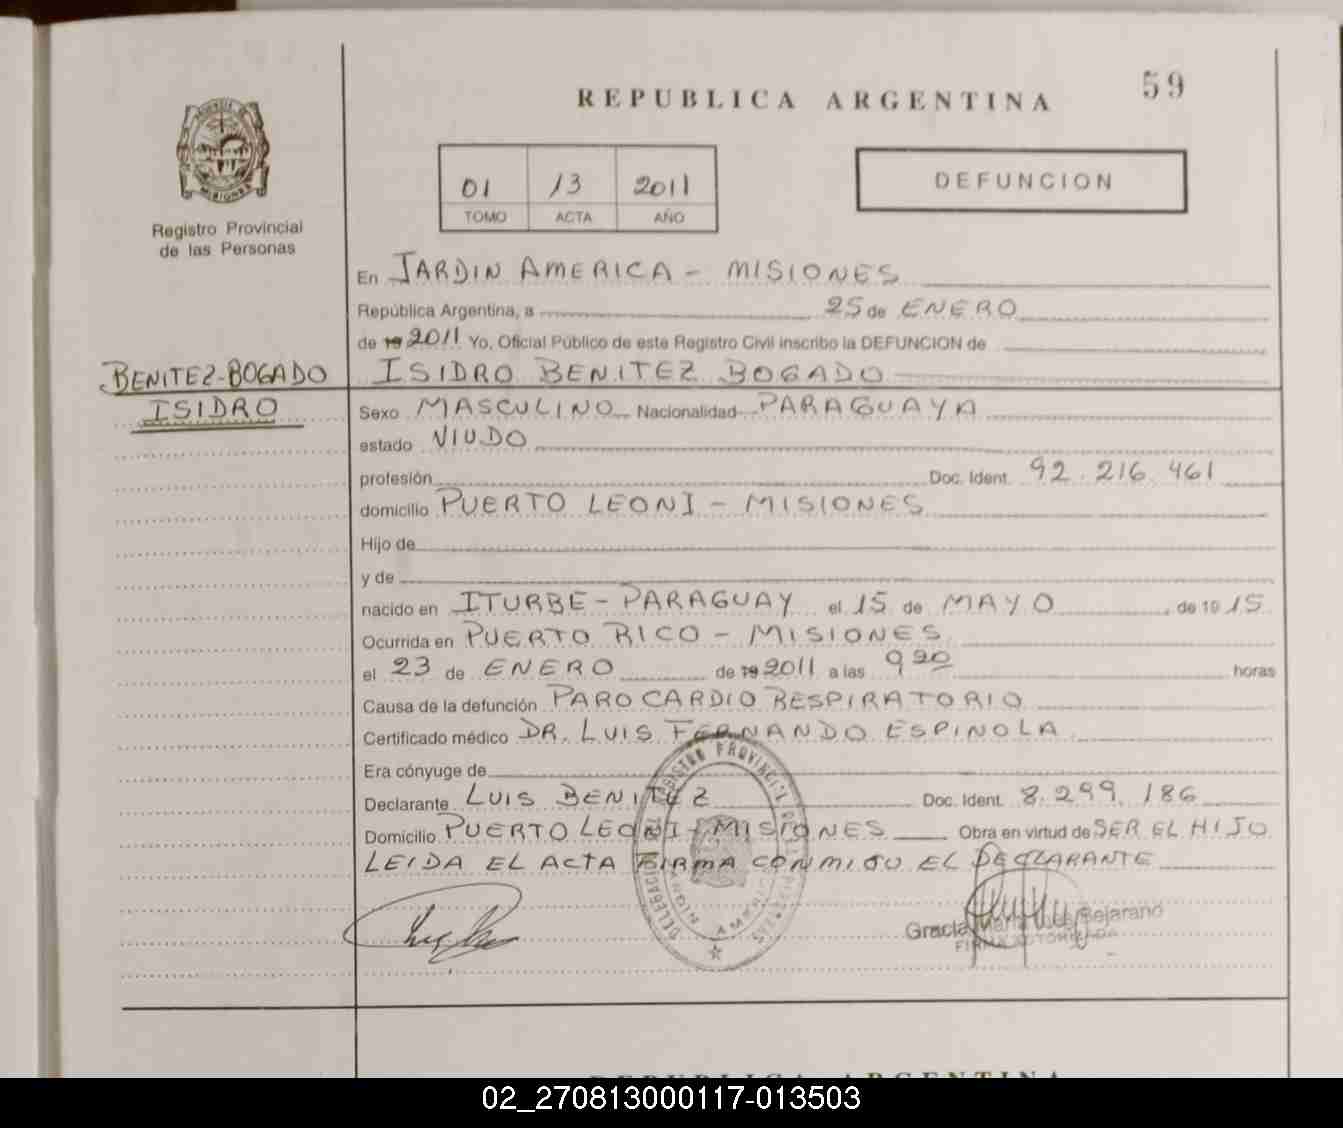 59
REPUBLICA ARGENTINA
DEFUNCION
01 13 2011
TOMO ACTA AÑO
MISIONES
Registro Provincial
de las Personas
En JARDIN AMERICA - MISIONES
República Argentina, a 25 de ENERO
de 19 2011 Yo, Oficial Público de este Registro Civil inscribo la DEFUNCION de
BENITEZ-BOGADO
ISIDRO
ISIDRO BENITEZ BOGADO
Sexo MASCULINO Nacionalidad PARAGUAYA
estado VIUDO
profesión Doc. Ident. 92.216.461
domicilio PUERTO LEONI - MISIONES
Hijo de
y de
nacido en ITURBE - PARAGUAY el 15 de MAYO de 19 15
Ocurrida en PUERTO RICO - MISIONES
el 23 de ENERO de 19 2011 a las 9 20 horas
Causa de la defunción PARO CARDIO RESPIRATORIO
Certificado médico DR. LUIS FERNANDO ESPINOLA
Era cónyuge de
Declarante LUIS BENITEZ Doc. Ident. 8.299.186
Domicilio PUERTO LEONI - MISIONES Obra en virtud de SER EL HIJO
LEIDA EL ACTA FIRMA CONMIGO EL DECLARANTE
REGISTRO PROVINCIAL DE LAS PERSONAS
DELEGACION
AMERICA
Graciela Bejarano
FIRMA AUTORIZADA
REPUBLICA ARGENTINA
02_270813000117-013503